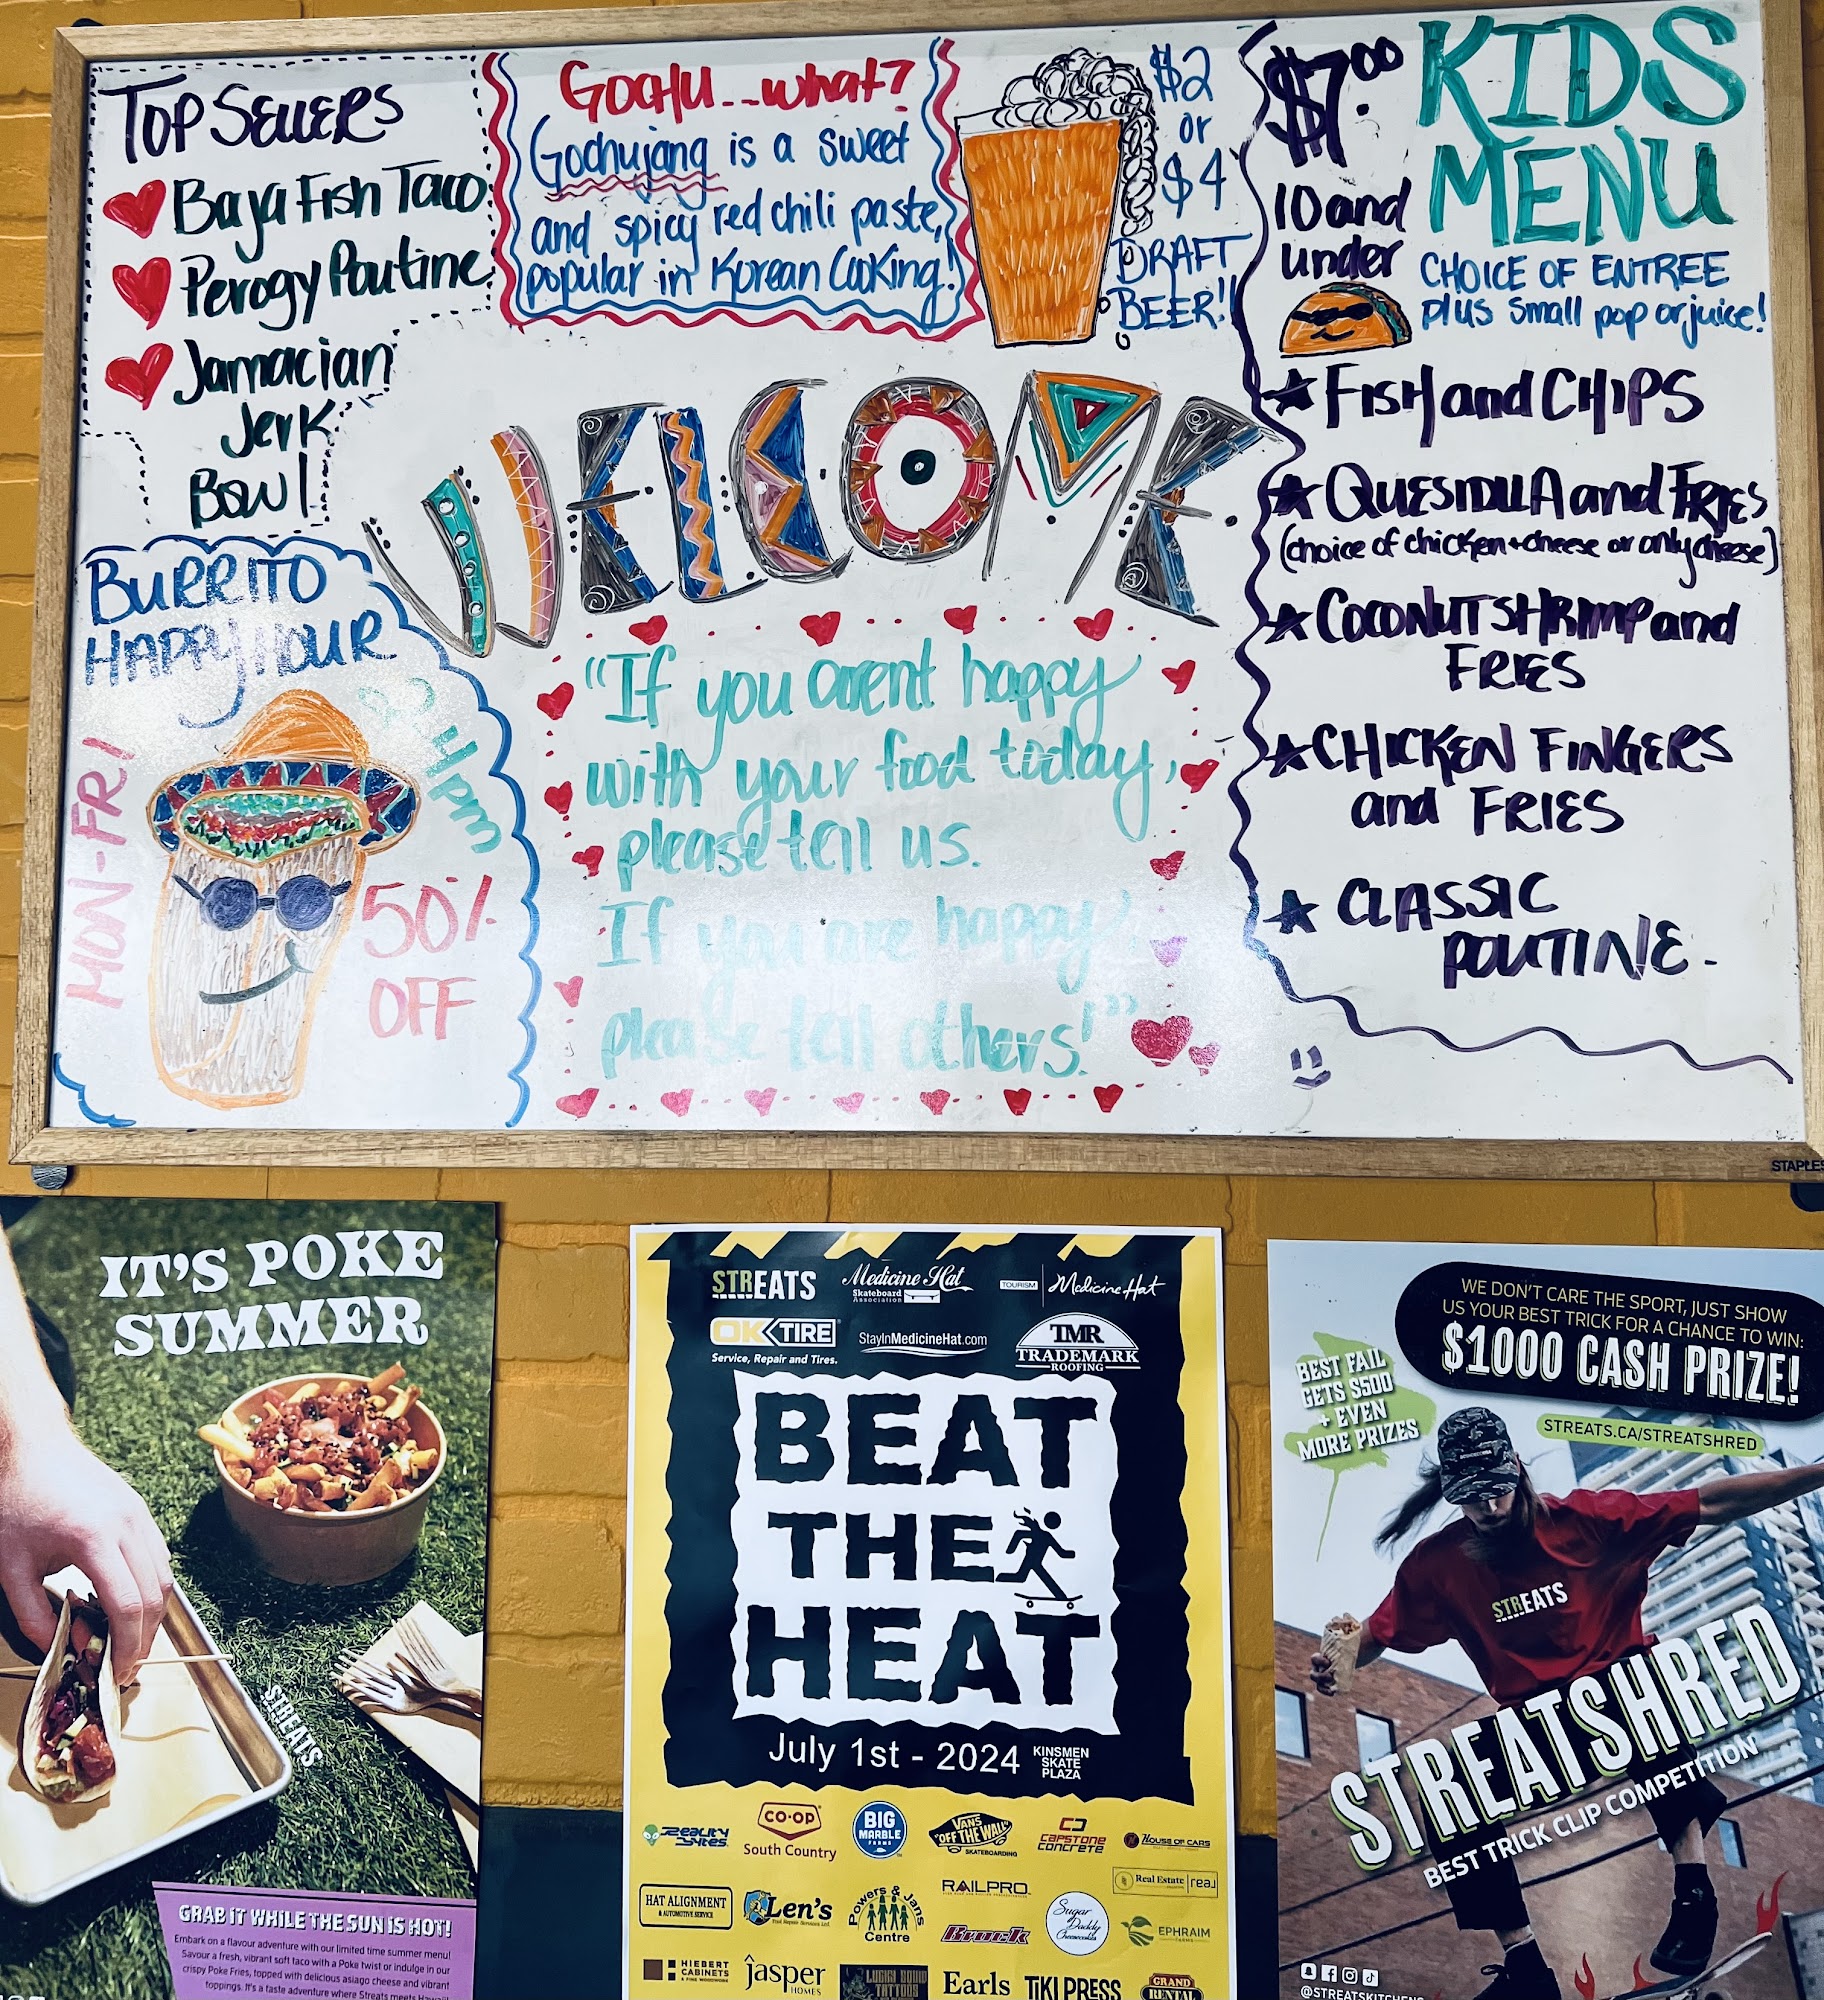 TOP SELLERS
Baja Fish Taco
Perogy Poutine
Jamacian
Jerk
Bowl
GOCHU...what?
Gochujang is a sweet
and spicy red chili paste,
popular in Korean Cooking!
$2
or
$4
DRAFT
BEER!!
$7.00
10 and
under
KIDS
MENU
CHOICE OF ENTREE
plus small pop or juice!
FISH and CHIPS
QUESIDILLA and FRIES
(choice of chicken + cheese or only cheese)
COCONUT SHRIMP and
FRIES
CHICKEN FINGERS
and FRIES
CLASSIC
POUTINE.
WELCOME
"If you arent happy
with your food today,
please tell us.
If you are happy,
please tell others!"
BURRITO
HAPPY HOUR
MON-FRI
2-4pm
50% OFF
STAPLES
IT'S POKE
SUMMER
STREATS
GRAB IT WHILE THE SUN IS HOT!
Embark on a flavour adventure with our limited time summer menu!
Savour a fresh, vibrant soft taco with a Poke twist or indulge in our
crispy Poke Fries, topped with delicious asiago cheese and vibrant
toppings. It's a taste adventure where Streats meets
STREATS
Medicine Hat
Skateboard
Association
TOURISM | Medicine Hat
OK TIRE
Service, Repair and Tires.
StayInMedicineHat.com
TMR
TRADEMARK
ROOFING
BEAT
THE
HEAT
July 1st - 2024
KINSMEN
SKATE
PLAZA
REALITY BYTES
CO-OP
South Country
BIG
MARBLE
FARMS
VANS
"OFF THE WALL"
SKATEBOARDING
CAPSTONE
CONCRETE
HOUSE OF CARS
HAT ALIGNMENT
& AUTOMOTIVE SERVICE
Len's
Powers & Jans
Centre
RAILPRO
Brock
Sugar
Daddy
Cheesecakes
Real Estate | real
EPHRAIM
HIEBERT
CABINETS
& FINE WOODWORK
jasper
HOMES
LUCIKI SQUID
TATTOOS
Earls
TIKI PRESS
GRAND
RENTAL
WE DON'T CARE THE SPORT, JUST SHOW
US YOUR BEST TRICK FOR A CHANCE TO WIN:
$1000 CASH PRIZE!
BEST FAIL
GETS $500
+ EVEN
MORE PRIZES
STREATS.CA/STREATSHRED
STREATS
STREATSHRED
BEST TRICK CLIP COMPETITION
@STREATSKITCHEN